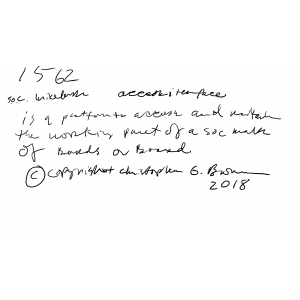 1562
soc. access interface
is a platform to access and
the working part of a soc made
of Boards or Board.
© copyright christopher G. Brown
2018